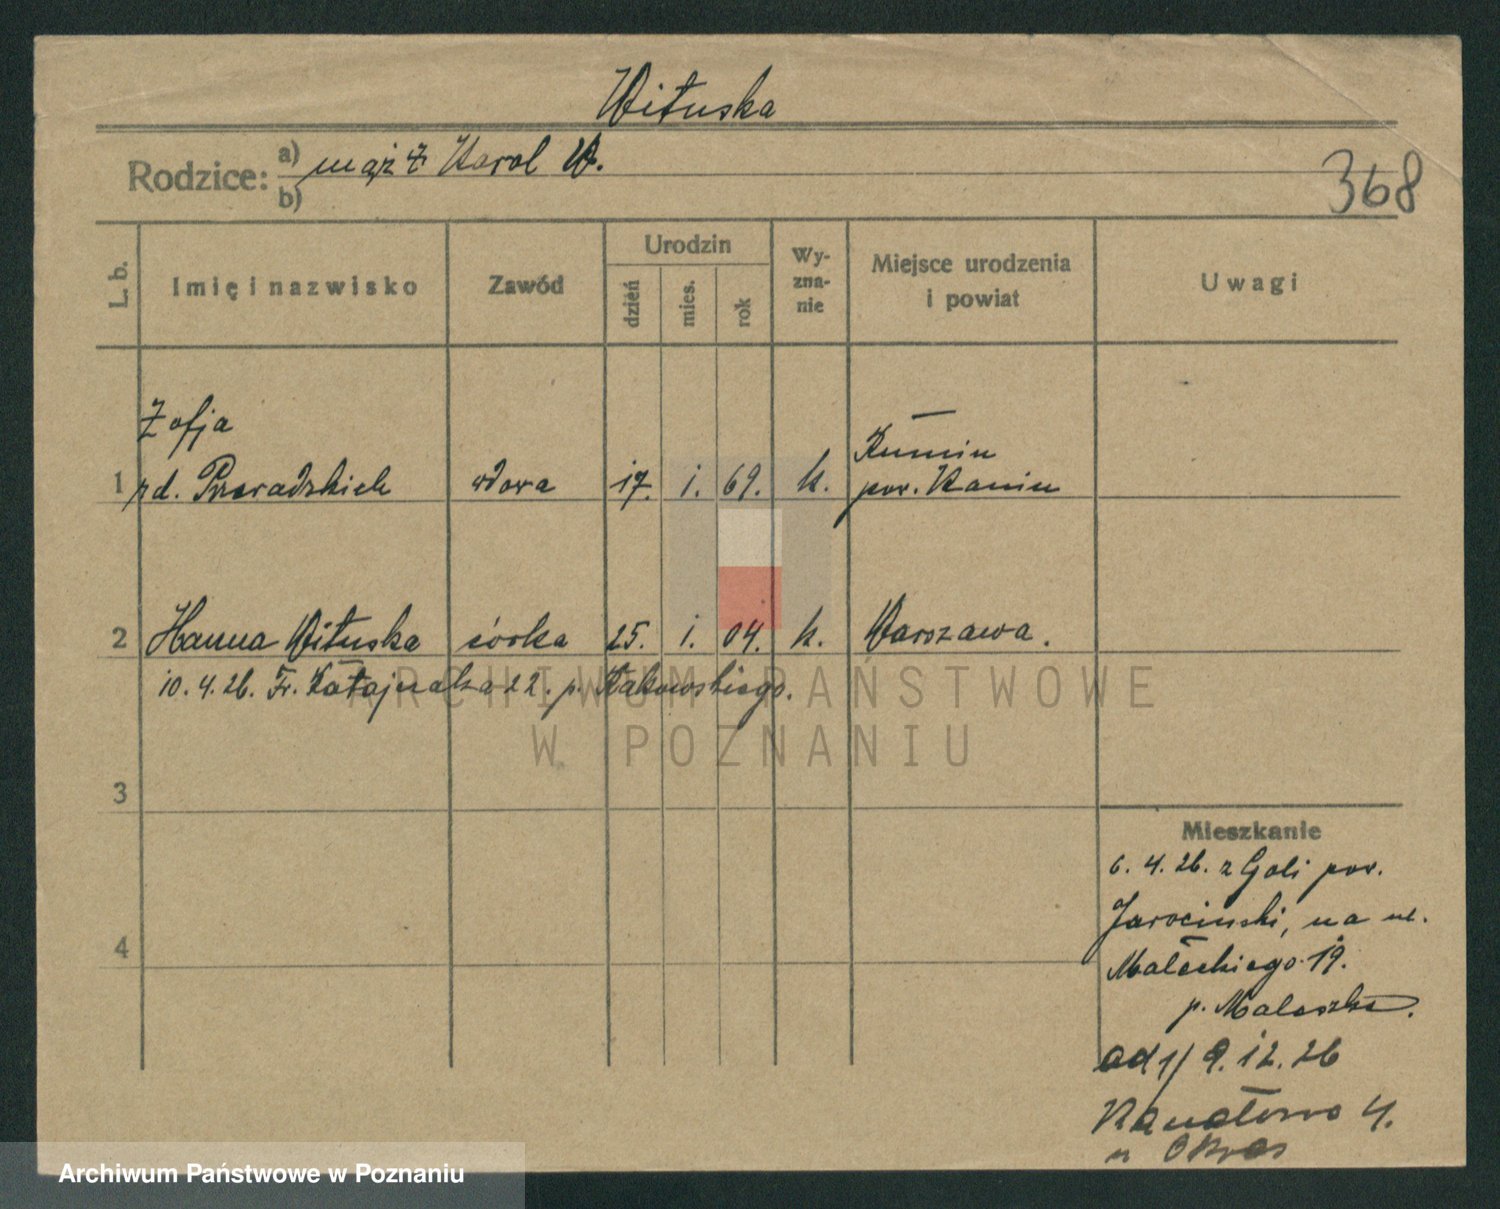 Wituska
Rodzice: a) mąż † Karol W.
b)
368
L. b.
Imię i nazwisko
Zawód
Urodzin
dzień
mies.
rok
Wy-
zna-
nie
Miejsce urodzenia
i powiat
Uwagi
Zofja
1 zd. wdowa 17. i. 69. k. pow. Konin
2 Hanna Wituska córka 25. i. 04. k. Warszawa.
10.4.26. Fr. Ratajczaka 22. p. Rakowskiego.
3
4
Mieszkanie
6. 4. 26. z Goli pow.
Jarociński, na ul.
Małeckiego 19.
p. Maleszka.
od 1/ 9. 12. 26
Kanałowa 4.
u
ARCHIWUM PAŃSTWOWE
W POZNANIU
Archiwum Państwowe w Poznaniu